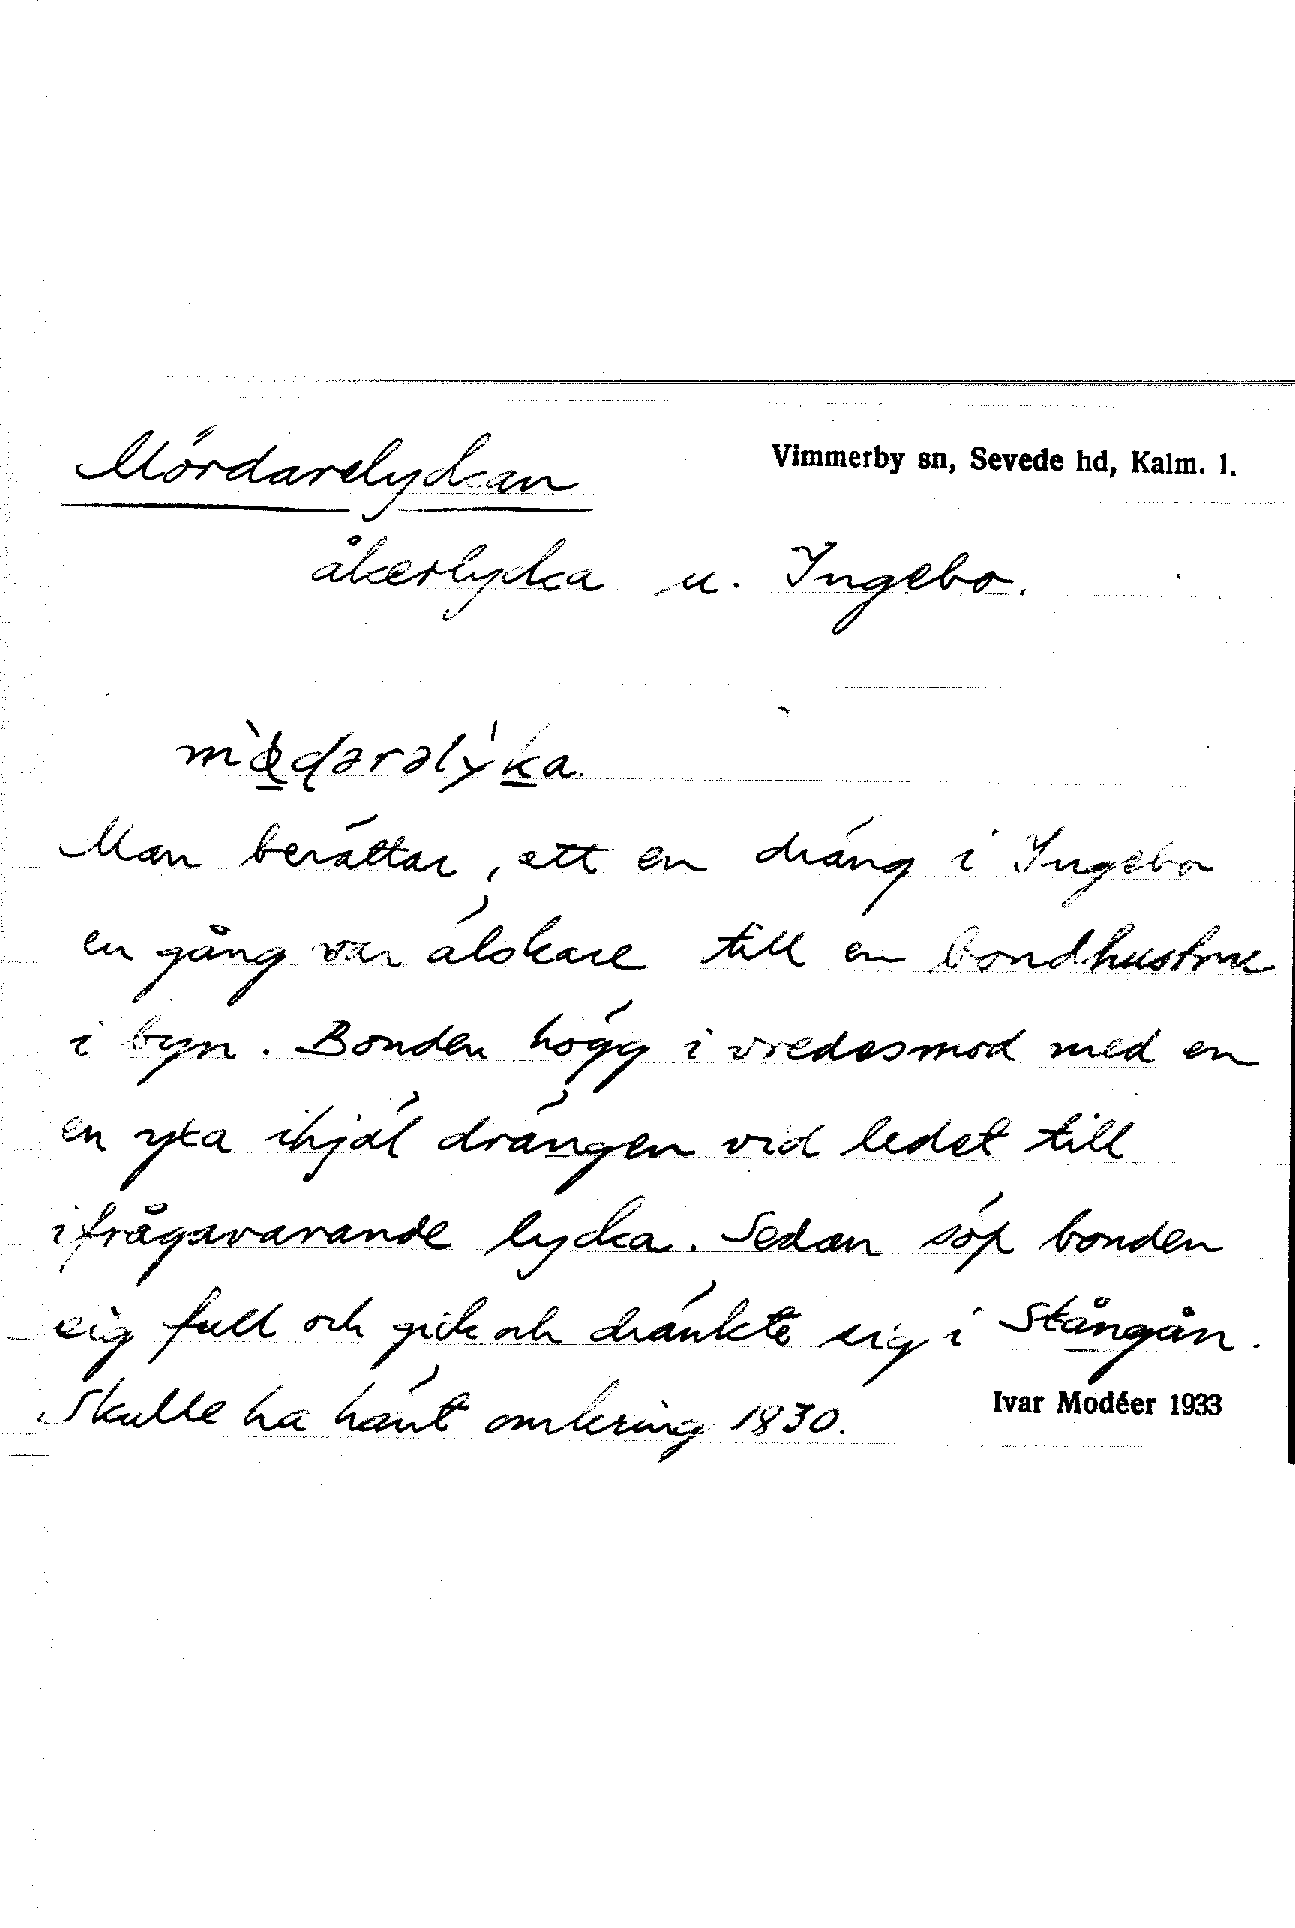 Mördarelyckan
Vimmerby sn, Sevede hd, Kalm. l.
åkerlycka u. Ingebo.
Man berättar, att en dräng i Ingebo
en gång var älskare till en bondhustru
i byn. Bonden högg i vredesmod med en
en yxa ihjäl drängen vid ledet till
ifrågavarande lycka. Sedan söp bonden
sig full och gick och dränkte sig i Stångån.
Skulle ha hänt omkring 1830.
Ivar Modéer 1933